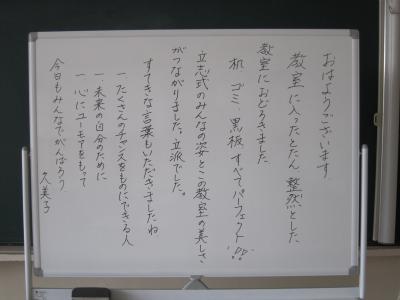 おはようございます
教室に入ったとたん 整然とした
教室におどろきました
机、ゴミ、黒板、すべてパーフェクト!!
立志式のみんなの姿とこの教室の美しさ
がつながりました。立派でした。
すてきな言葉もいただきましたね
一.たくさんのチャンスをものにできる人
一.未来の自分のために
一.心にユーモアをもって
今日もみんなでがんばろう
久美子